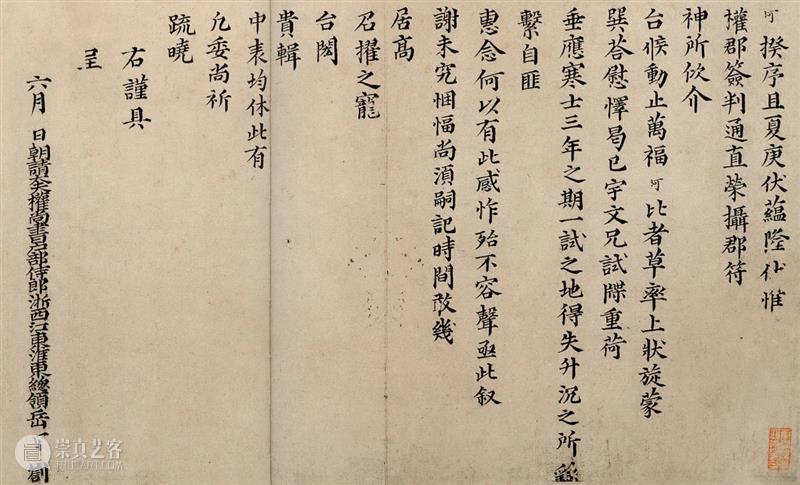 珂揆序且夏庚伏蘊隆仆惟
權郡簽判通直榮攝郡符
神所攸介
台候動止萬福珂比者草率上狀旋蒙
巽荅慰懌曷已宇文兄試牒重荷
垂應寒士三年之期一試之地得失升沉之所繇
繫自匪
惠念何以有此感怍殆不容聲亟此叙
謝未究悃愊尚湏嗣記時間敢幾
居髙
召擢之寵
台閎
貴輯
中表均休此有
凡委尚祈
疏曉
右謹具
呈
六月 日朝請大夫權尚書户部侍郎浙西江東淮東總領岳 劄
崇真艺客
WWW.TRUEART.COM